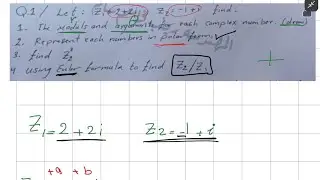 Q.1 / Let: Z1=2+2i Z2=-1+i find.
1. The modals and each complex number. (draw)
2. Represent each numbers in Euler form.
3. find Z2
4 Using Euler formula to find Z2/Z1
Z1=2+2i Z2=-1+i
+a + b